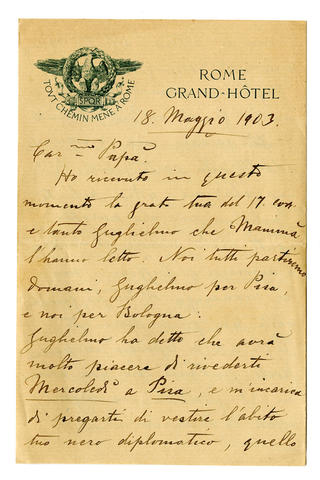 TOUT CHEMIN MÈNE À ROME
SPQR
ROME
GRAND-HÔTEL
18. Maggio 1903.
Car.mo Papà.
Ho ricevuto in questo
momento la grat tua del 17. corr
e tanto Guglielmo che Mamma
l'hanno letto. Noi tutti partiremo
domani, Guglielmo per Pisa,
e noi per Bologna.
Guglielmo ha detto che avrà
molto piacere di rivederti
Mercoledì a Pisa, e m'incarica
di pregarti di vestire l'abito
tuo nero diplomatico, quello